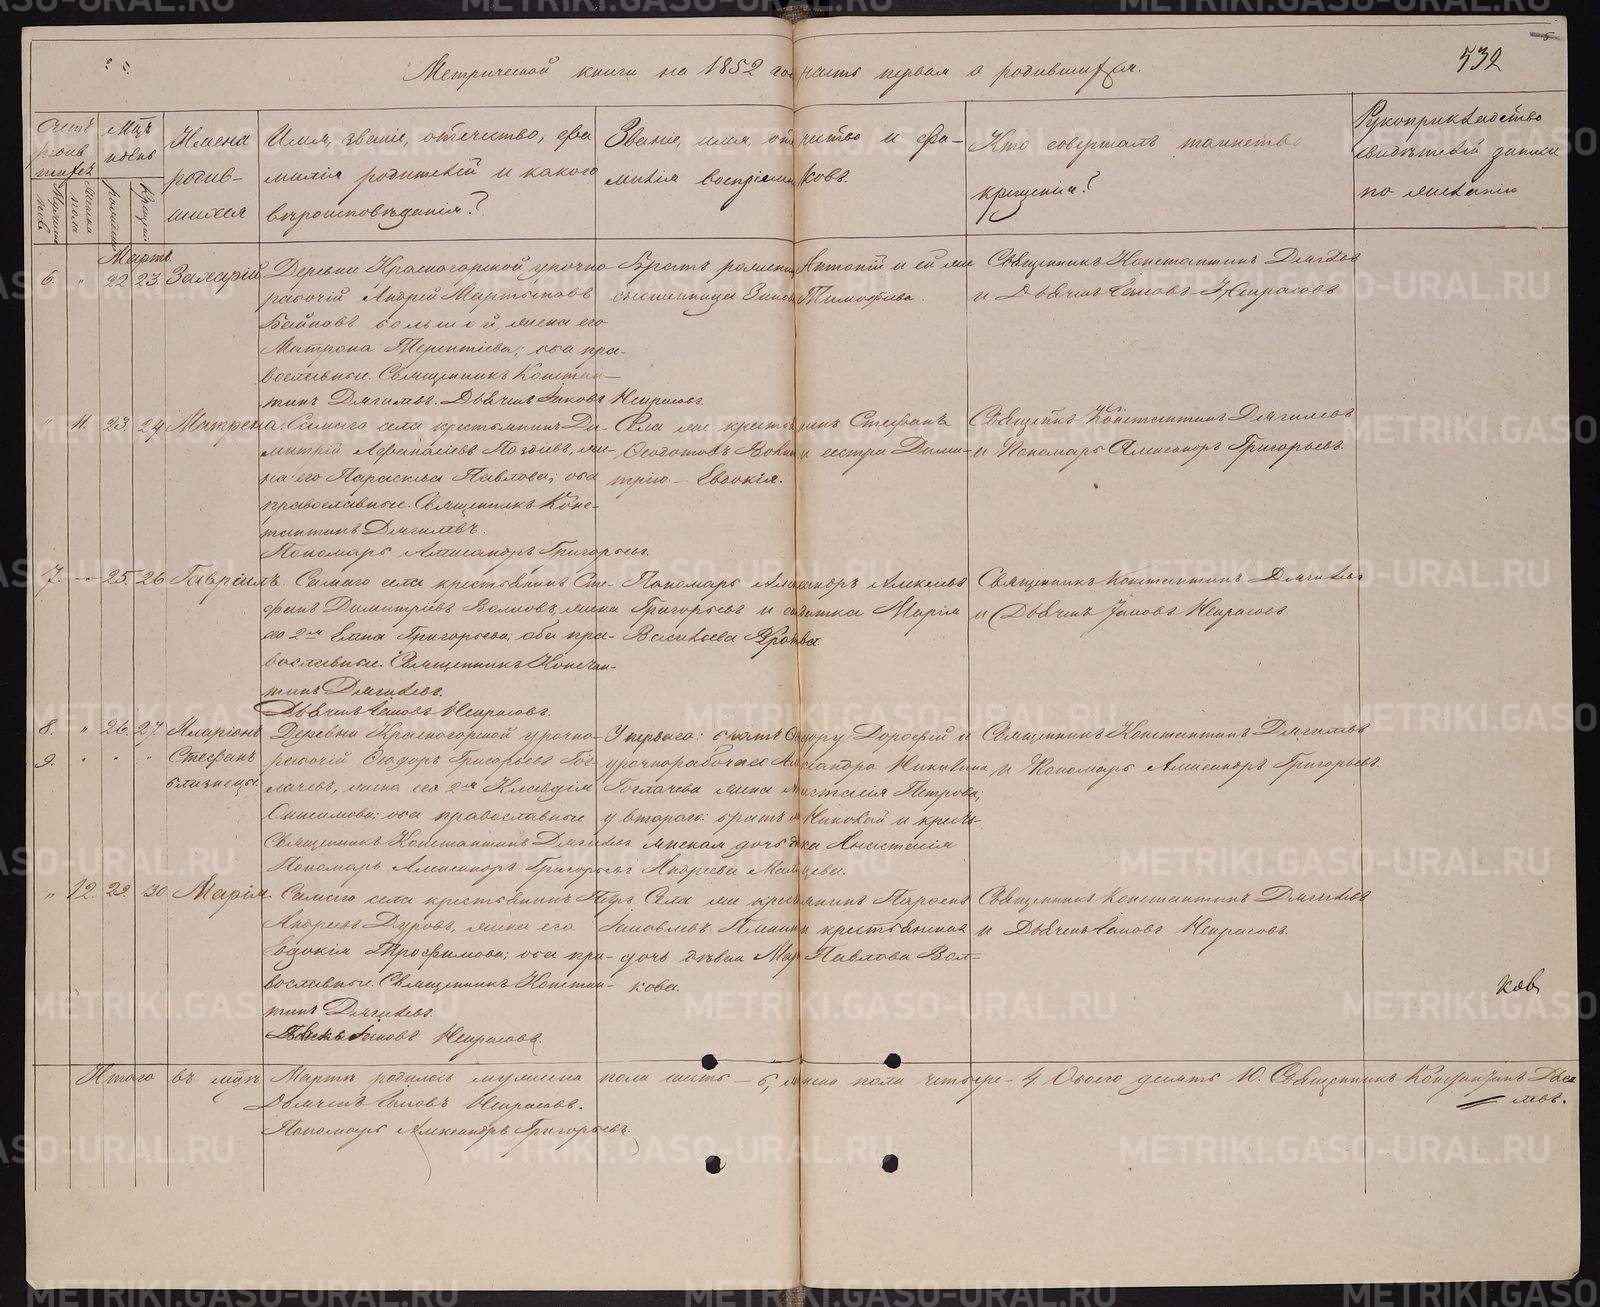 532
Метрической книги на 1852 год часть первая о родившихся.
Счетъ родив шихся
Мужеска пола
Женска пола
Мцъ и день
Рожденія
Крещенія
Имена родив- шихся
Имя, званіе, отечество, фа милія родителей и какого вѣроисповѣданія?
Званіе, имя, отчество и фа- милія воспріемниковъ.
Кто совершалъ таинство крещенія?
Рукоприкладство свидѣтелей записи по желанію
Мартъ
6. " 22 23.
Деревни Красногорской урочно- рабочій Андрей Мартыновъ
большой, жена его
Матрона Терентіева; оба пра-
вославные. Священникъ Констан-
тинъ Дягилевъ. Дьячекъ Іаковъ Некрасовъ.
Антоній и ей же
Тимофѣева.
Священникъ Константинъ Дягилевъ
и Дьячекъ Іаковъ Некрасовъ
" 11. 23. 24 Матрена. Самаго села крестьянинъ Ди-
митрій Афанасіевъ жe-
на его Параскева Павлова; оба
православные. Священникъ Конс-
тантинъ Дягилевъ.
Пономарь Александръ Григорьевъ.
Села же крестьянинъ Стефанъ
и сестра Дими-
трію – Евдокія.
Священникъ Константинъ Дягилевъ
и Пономарь Александръ Григорьевъ.
7. – 25. 26 Гавріилъ. Самаго села крестьянинъ Сте-
фанъ Димитріевъ Волковъ, жена
его 2я Елена Григорьева; оба пра-
вославные. Священникъ Констан-
тинъ Дягилевъ.
Дьячекъ Іаковъ Некрасовъ.
Пономарь Александръ Алексѣевъ
Григорьевъ и Марія
Васильева
Священникъ Константинъ Дягилевъ
и Дьячекъ Іаковъ Некрасовъ
8. " 26. 27. Иларіонъ
9. " " " Стефанъ
близнецы.
Деревни Красногорской урочно-
рабочій Ѳеодоръ Григорьевъ Гог-
лачевъ, жена его 2я Клавдія
Онисимова; оба православные
Священникъ Константинъ Дягилевъ
Пономарь Александръ Григорьевъ
У перваго: братъ Ѳеодору Дорофей и
урочнорабочаго Александра Никитина
Гоглачева жена Петрова;
у втораго: братъ же Николай и
дочь дѣвка Анастасія
Андреева
Священникъ Константинъ Дягилевъ
и Пономарь Александръ Григорьевъ.
" 12. 29. 30 Марія. Самаго села крестьянинъ Петръ
Андреевъ Дуровъ, жена его
Евдокія Трофимова; оба пра-
вославные. Священникъ Констан-
тинъ Дягилевъ.
Дьячекъ Іаковъ Некрасовъ.
Села же крестьянинъ
Іаковлевъ и крестьянская
дочь дѣвка Павлова Вол-
кова.
Священникъ Константинъ Дягилевъ
и Дьячекъ Іаковъ Некрасовъ.
Итого въ мцѣ Мартѣ родилось мужеска пола шесть – 6, женска пола четыре – 4. Обоего десять 10. Священникъ Константинъ Дяги
левъ.
Дьячекъ Іаковъ Некрасовъ.
Пономарь Александръ Григорьевъ.
METRIKI.GASO-URAL.RU